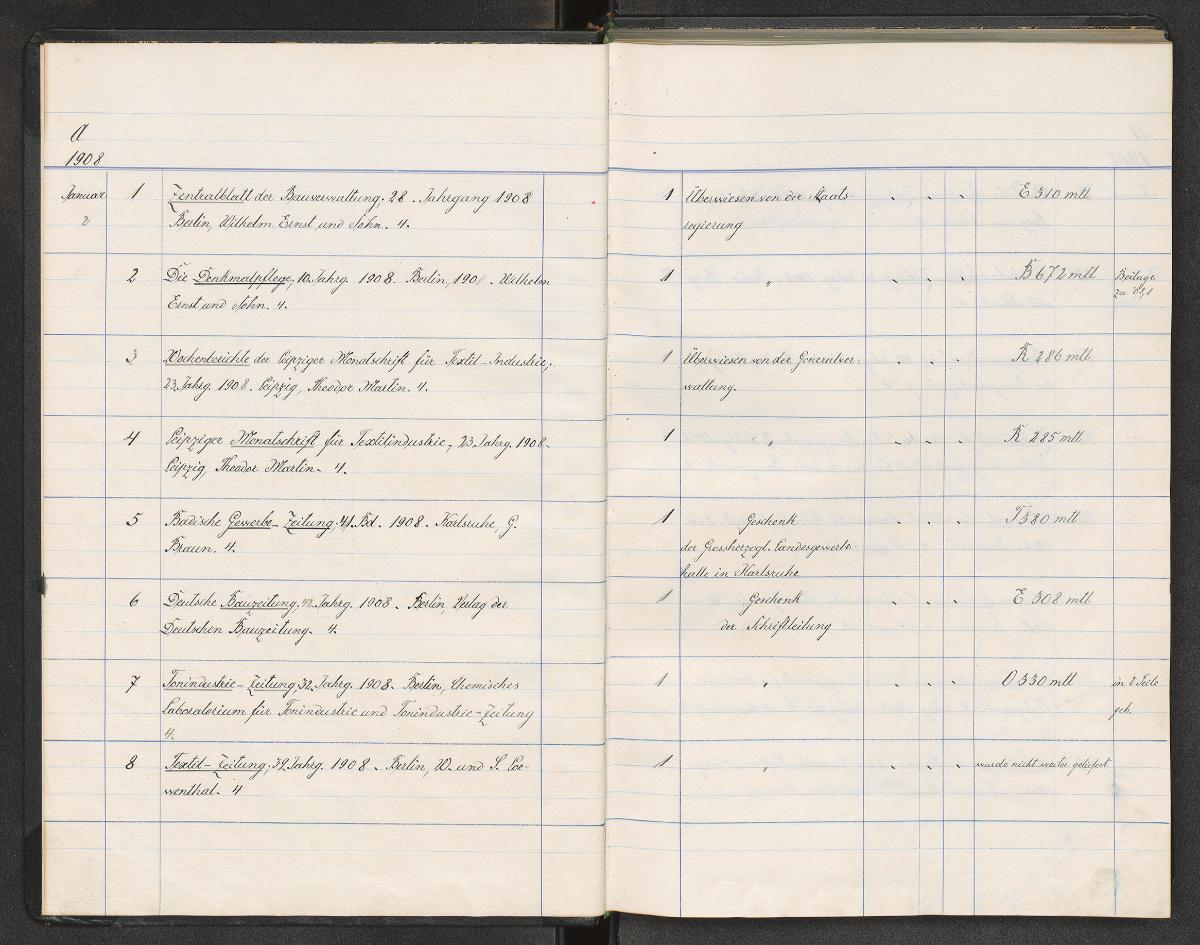 A
1908
Januar 1 Zentralblatt der Bauverwaltung. 28. Jahrgang 1908 1 Überwiesen von der Staats- . . . E 310 mtl
2 Berlin, Wilhelm Ernst und Sohn. 4. regierung
2 Die Denkmalpflege, 10. Jahrg. 1908. Berlin, 1908. Wilhelm 1 " . . . B 672 mtl Beilage
Ernst und Sohn. 4. zu 08,1
3 Wochenberichte der Leipziger Monatschrift für Textil-Industrie, 1 Überwiesen von der Generalver- . . . K 286 mtl
23. Jahrg. 1908. Leipzig, Theodor Martin. 4. waltung.
4 Leipziger Monatschrift für Textilindustrie, 23. Jahrg. 1908. 1 " . . . K 285 mtl
Leipzig, Theodor Martin. 4.
5 Badische Gewerbe-Zeitung, 41. Bd. 1908. Karlsruhe, G. 1 Geschenk . . . T 380 mtl
Braun. 4. der Grossherzogl. Landesgewerbe-
halle in Karlsruhe
6 Deutsche Bauzeitung. 42. Jahrg. 1908. Berlin Verlag der 1 Geschenk . . . E 308 mtl
Deutschen Bauzeitung. 4. der Schriftleitung
7 Tonindustrie-Zeitung, 32. Jahrg. 1908. Berlin, Chemisches 1 " . . . O 330 mtl in 2 Teile
Laboratorium für Tonindustrie und Tonindustrie-Zeitung geb.
4.
8 Textil-Zeitung, 39. Jahrg. 1908. Berlin, W. und S. Loe- 1 " . . . wurde nicht weiter geliefert
wenthal. 4